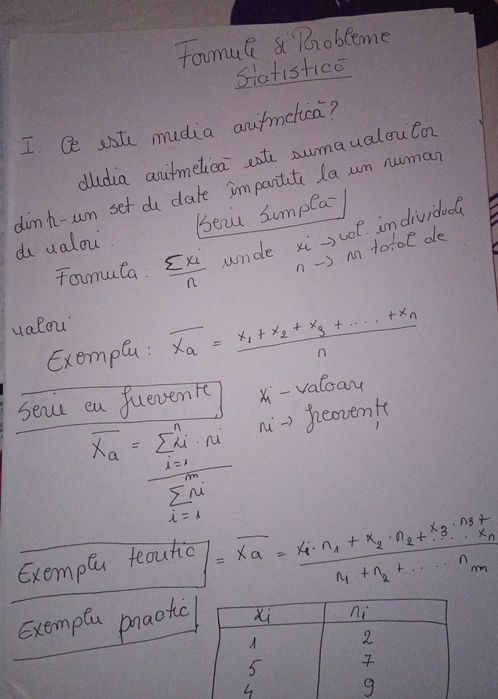 Formule si Probleme
Statistică
I. Ce este media aritmetică?
Media aritmetică este suma valorilor
dintr-un set de date împartite la un numar
de valori.
Serie simpla
Formula: Σxi/n unde xi → val. individuale
n → nr total de
valori
Exemplu: X̄a = (x1 + x2 + x3 + ..... + xn)/n
Serie cu frecvente
xi - valoare
ni → frecvențe
X̄a = Σ(i=1, n) xi · ni / Σ(i=1, m) ni
Exemplu teoretic = X̄a = (xi · n1 + x2 · n2 + x3 · n3 + ..... xn)/(n1 + n2 + ..... nm)
Exemplu practic
xi ni
1 2
5 7
4 9